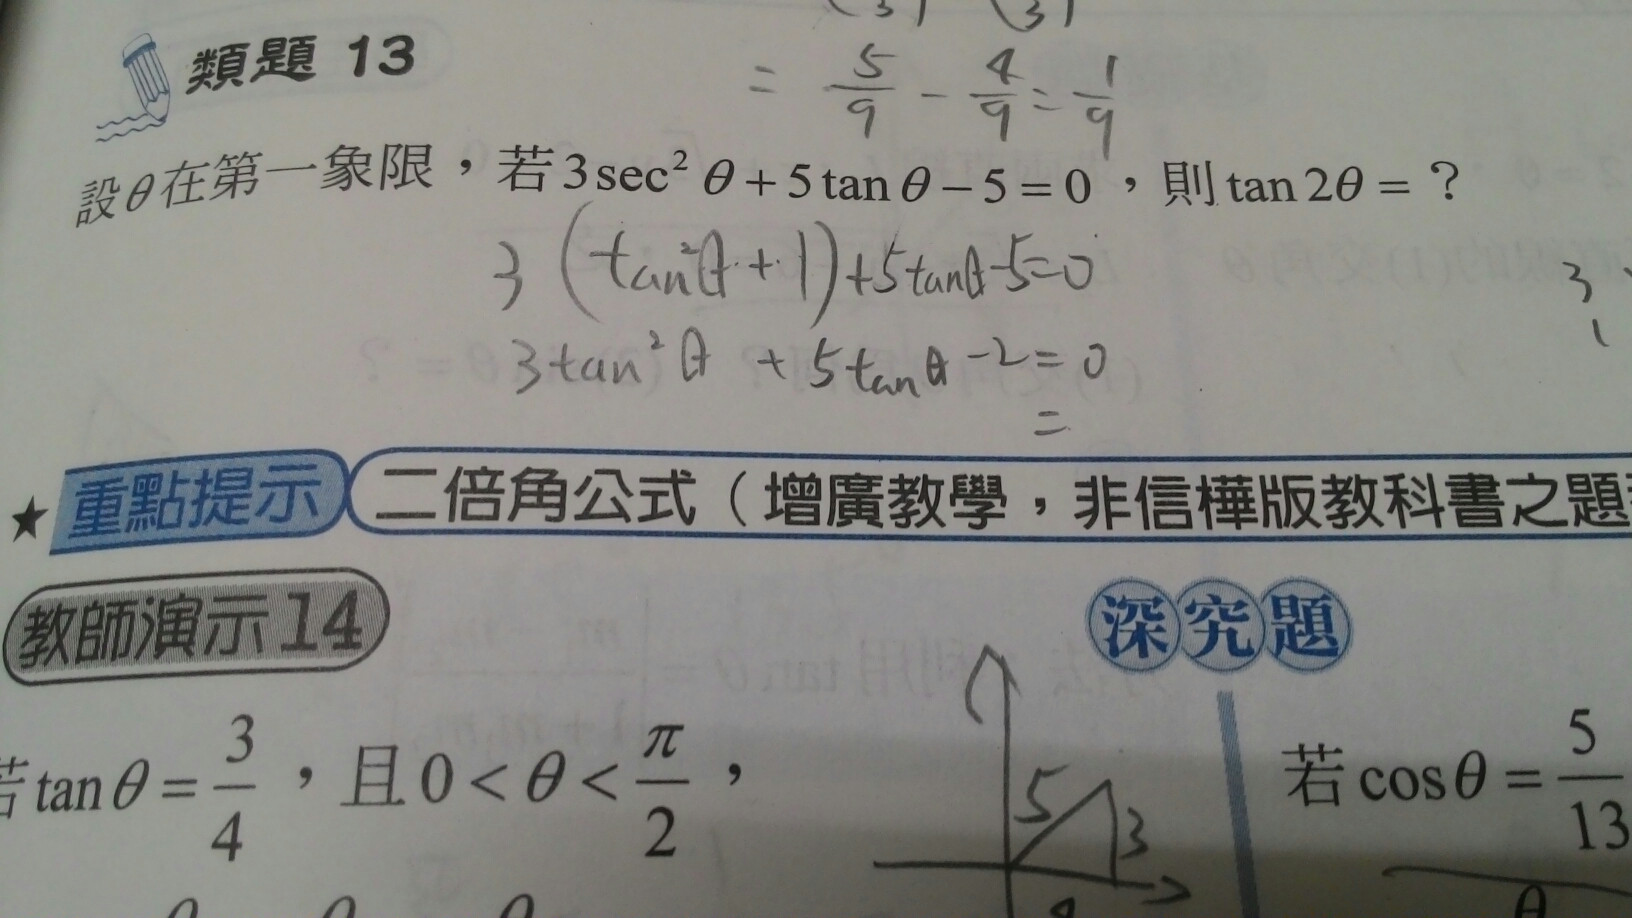 類題 13
= 5/9 - 4/9 = 1/9
設θ在第一象限,若3sec²θ+5tanθ-5=0,則tan2θ=?
3(tan²θ+1)+5tanθ-5=0
3
1
3tan²θ+5tanθ-2=0
=
★ 重點提示 二倍角公式(增廣教學,非信樺版教科書之題
教師演示14
深究題
若tanθ=3/4,且0<θ<π/2,
5
3
若cosθ=5/13
θ